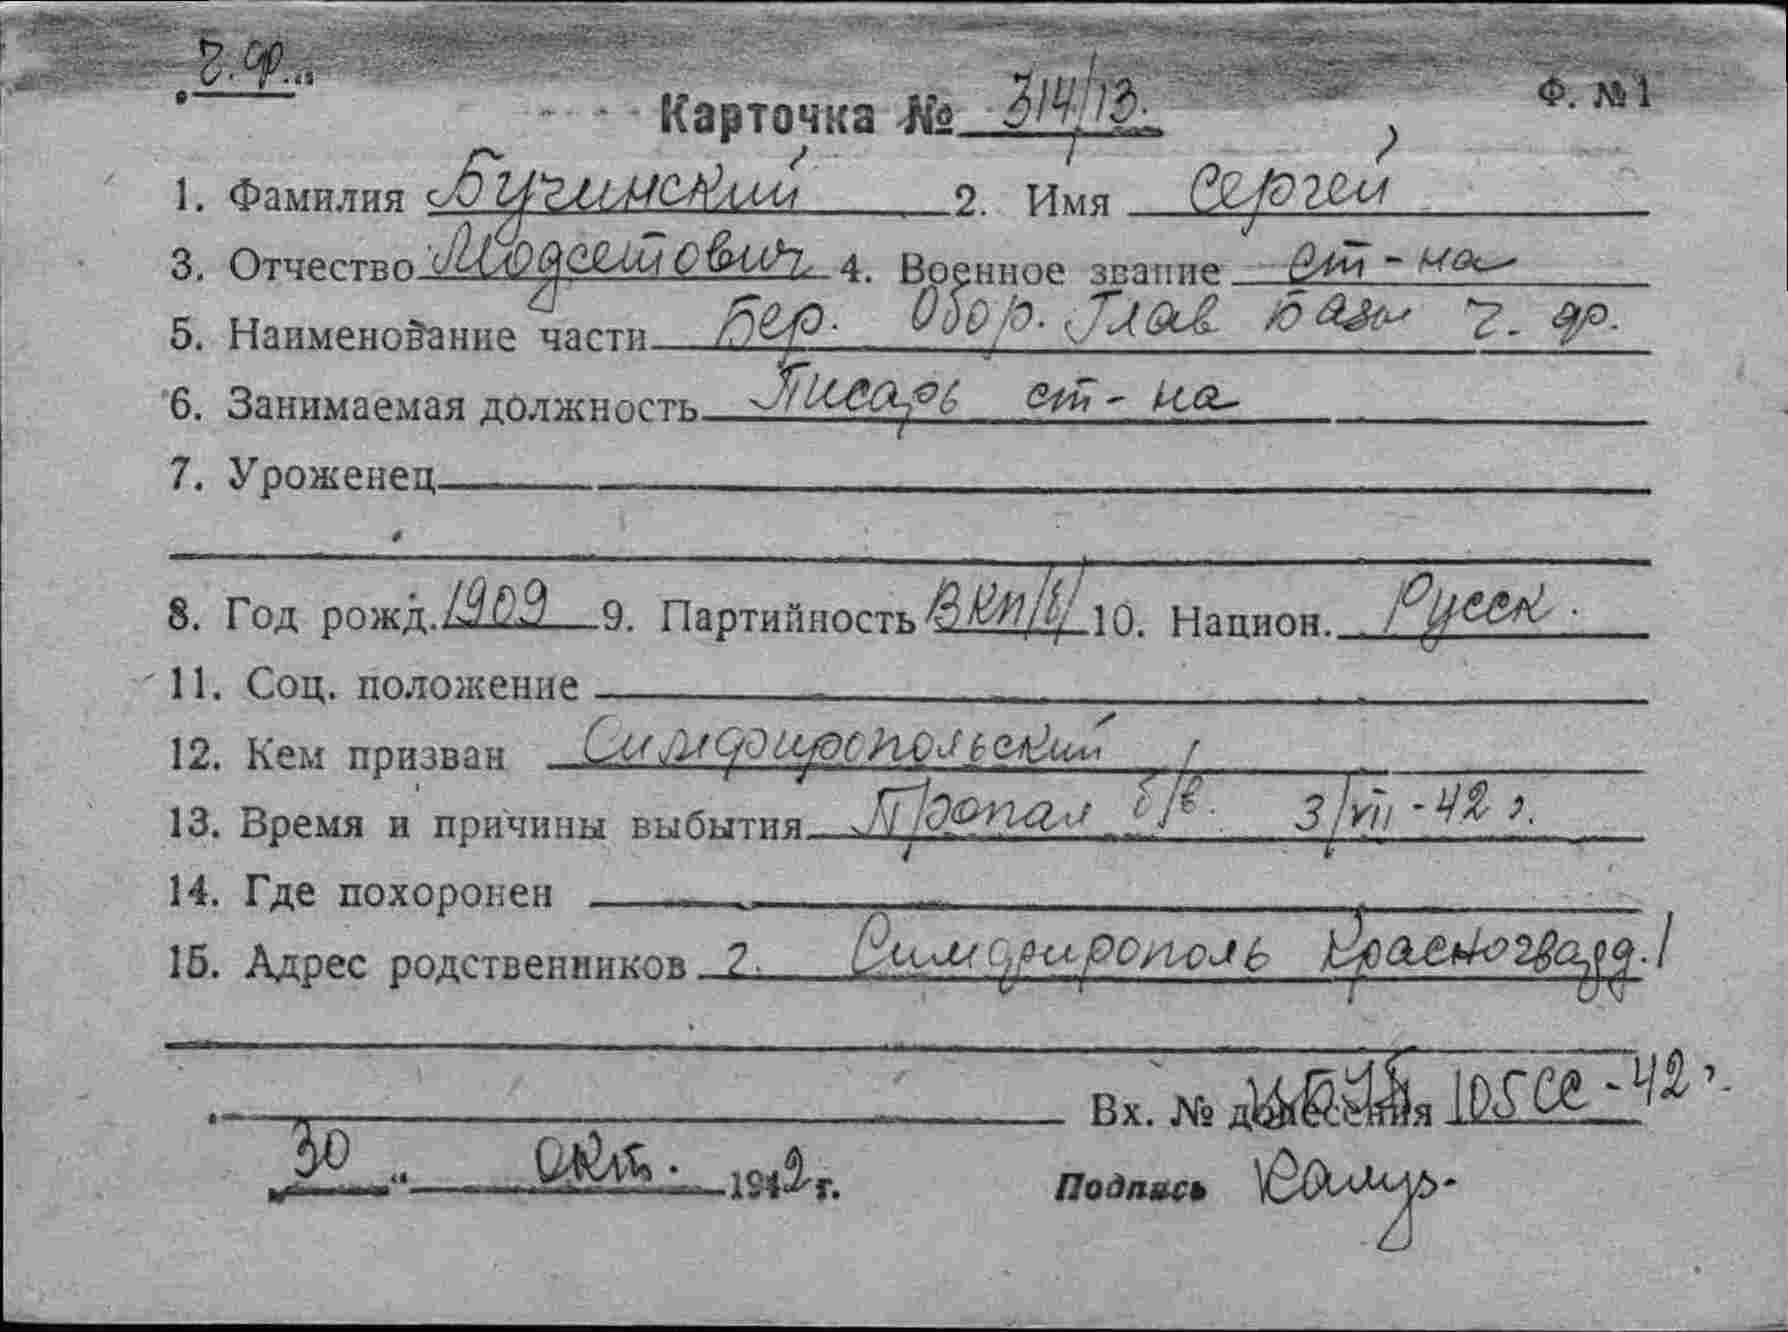 Ч. Ф.
Карточка № 314/13. Ф. №1
1. Фамилия Бучинский 2. Имя Сергей
3. Отчество Модестович 4. Военное звание ст-на
5. Наименование части Бер. Обор. Глав базы Ч. Ф.
6. Занимаемая должность Писарь ст-на
7. Уроженец
8. Год рожд. 1909 9. Партийность ВКП/б/ 10. Национ. Русск.
11. Соц. положение
12. Кем призван Симферопольский
13. Время и причины выбытия Пропал б/в. 3/VII-42 г.
14. Где похоронен
15. Адрес родственников г. Симферополь Красногвард. 1
Вх. № донесения 105сс-42 г.
30 " Окт. 1942 г. Подпись